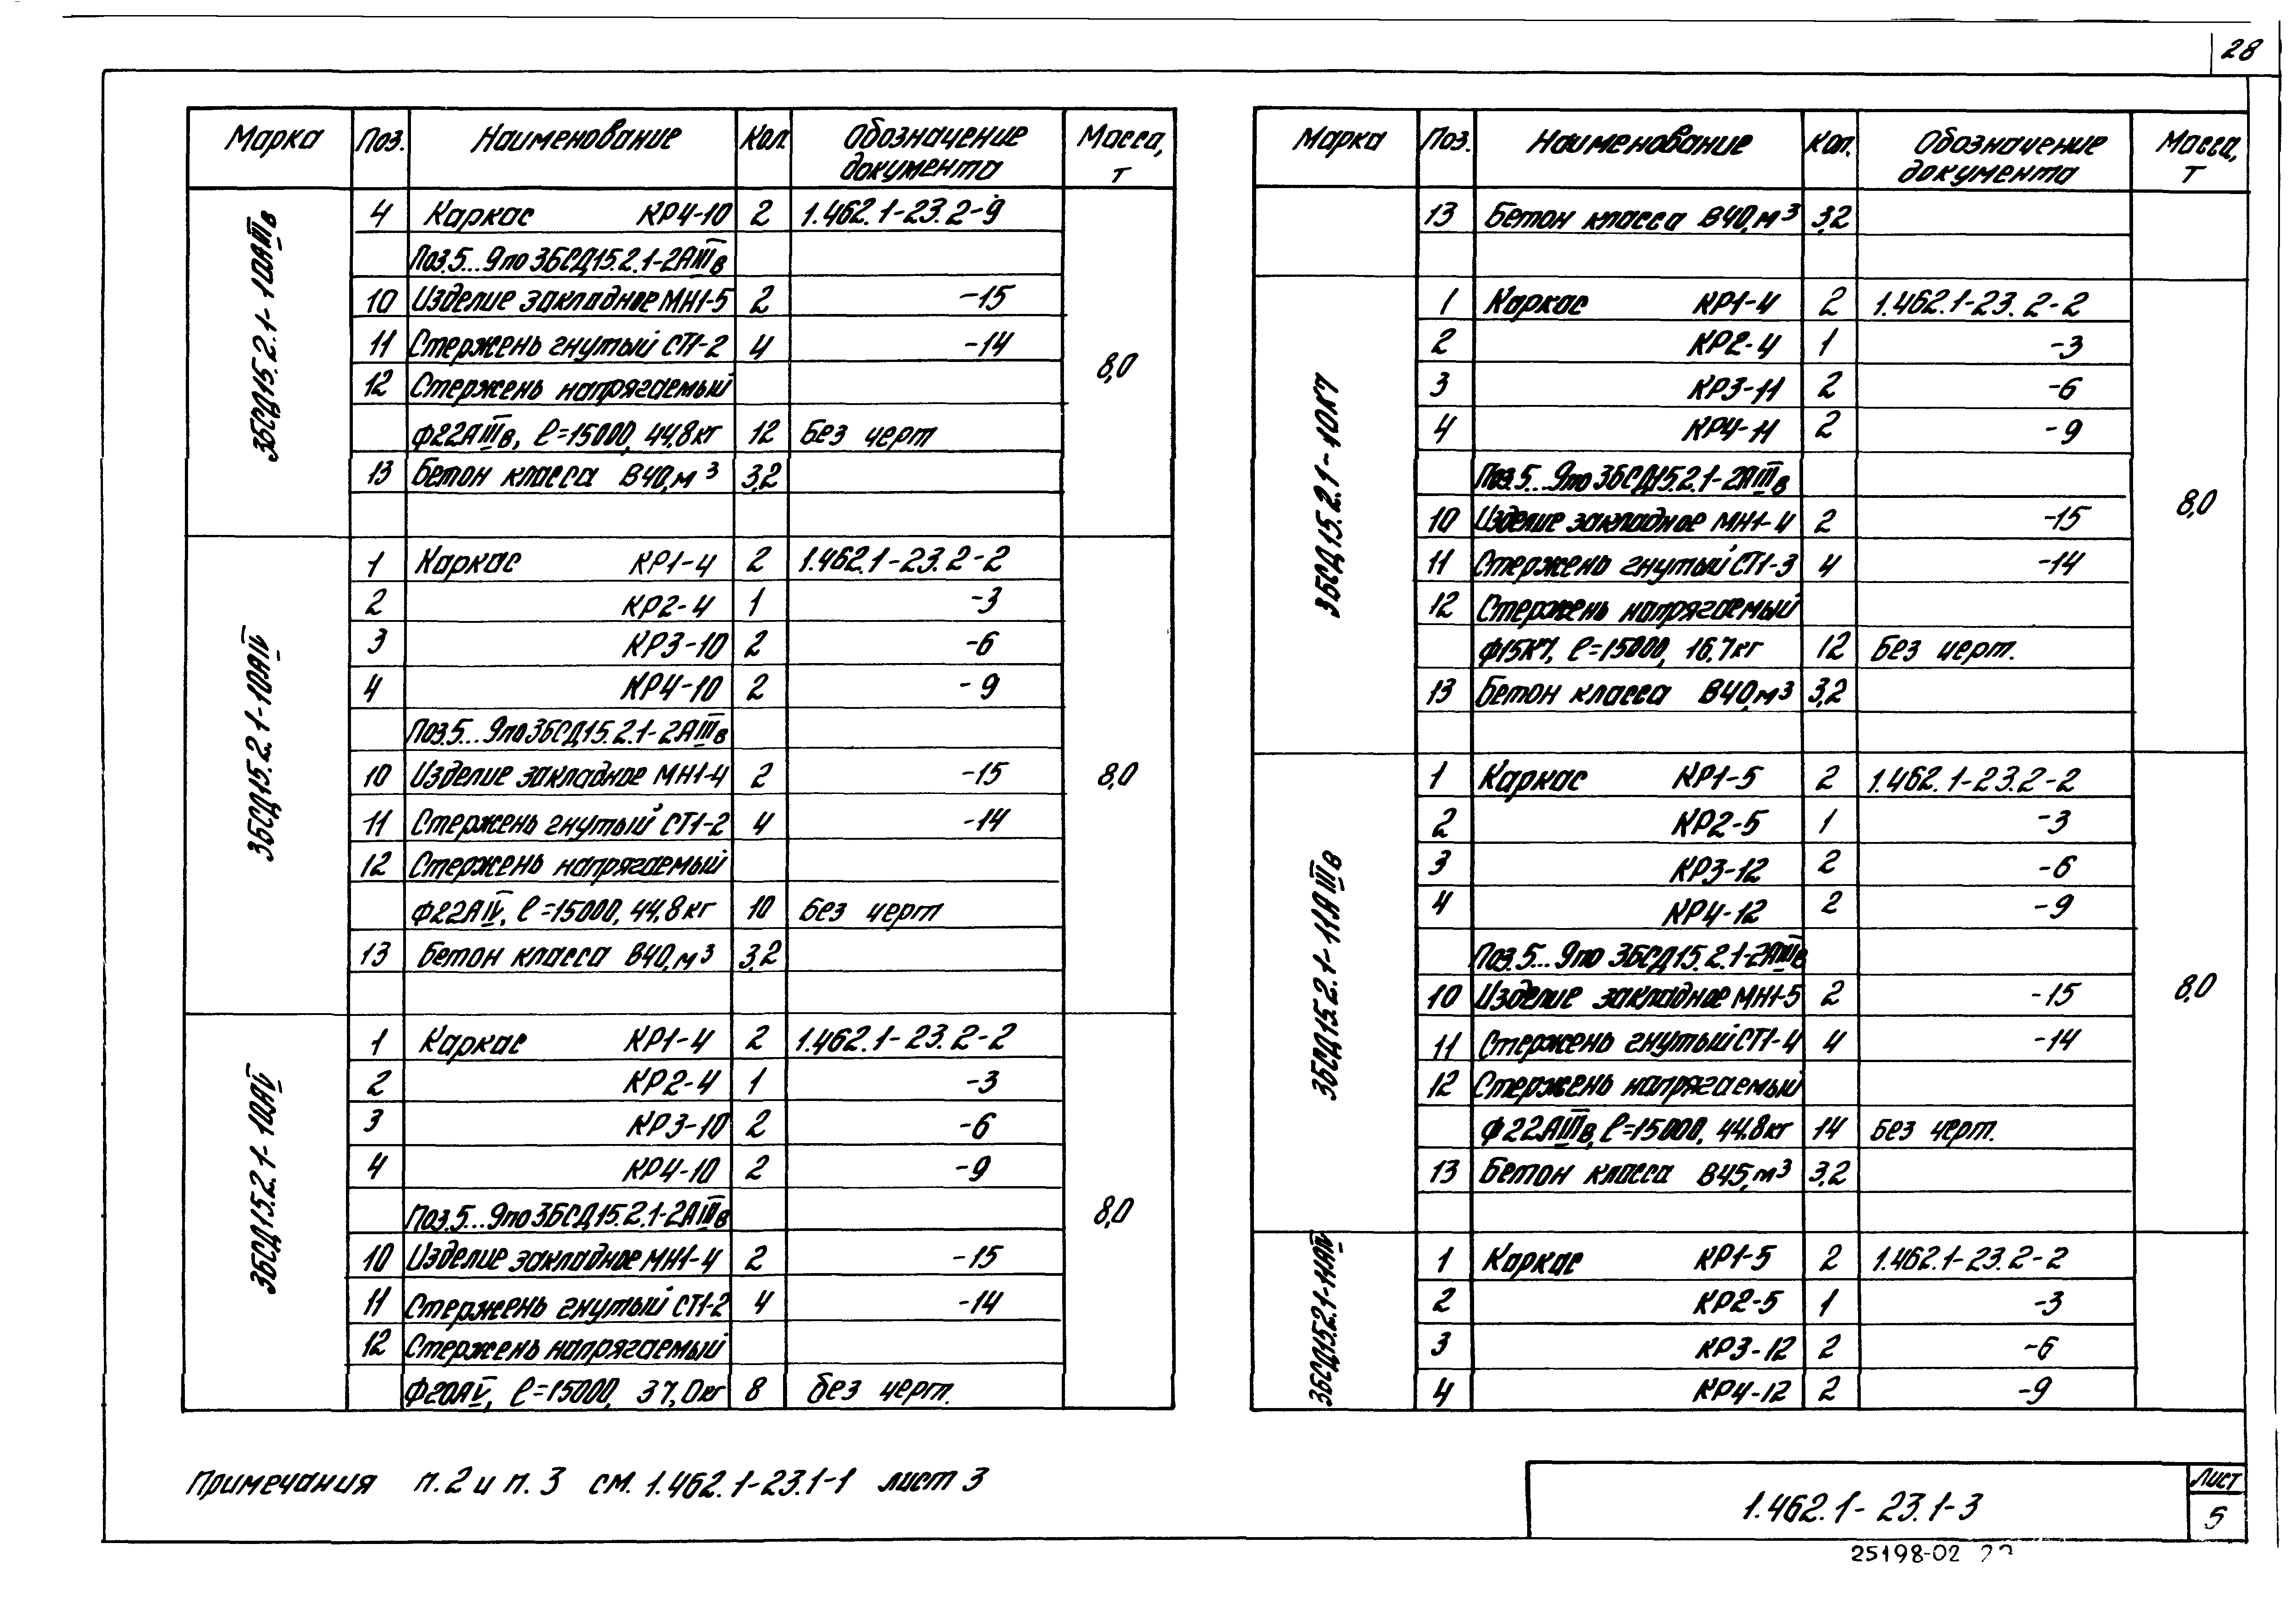 28
Марка Поз. Наименование Кол. Обозначение документа Масса, т
3БСД15.2.1-10АIIIв
4 Каркас КР4-10 2 1.462.1-23.2-9
Поз.5...9по 3БСД15.2.1-2АIIIв
10 Изделие закладное МН1-5 2 -15
11 Стержень гнутый СТ1-2 4 -14
8,0
12 Стержень напрягаемый
Ф22АIIIв, ℓ=15000, 44,8кг 12 Без черт
13 Бетон класса В40, м³ 3,2
3БСД15.2.1-10АIV
1 Каркас КР1-4 2 1.462.1-23.2-2
2 КР2-4 1 -3
3 КР3-10 2 -6
4 КР4-10 2 -9
Поз.5...9по 3БСД15.2.1-2АIIIв
10 Изделие закладное МН1-4 2 -15
8,0
11 Стержень гнутый СТ1-2 4 -14
12 Стержень напрягаемый
Ф22АIV, ℓ=15000, 44,8кг 10 Без черт
13 Бетон класса В40, м³ 3,2
3БСД15.2.1-10АV
1 Каркас КР1-4 2 1.462.1-23.2-2
2 КР2-4 1 -3
3 КР3-10 2 -6
4 КР4-10 2 -9
Поз.5...9по 3БСД15.2.1-2АIIIв
8,0
10 Изделие закладное МН1-4 2 -15
11 Стержень гнутый СТ1-2 4 -14
12 Стержень напрягаемый
Ф20АV, ℓ=15000, 37,0кг 8 без черт.
Марка Поз. Наименование Кол. Обозначение документа Масса, т
13 Бетон класса В40, м³ 3,2
3БСД15.2.1-10К7
1 Каркас КР1-4 2 1.462.1-23.2-2
2 КР2-4 1 -3
3 КР3-11 2 -6
4 КР4-11 2 -9
Поз.5...9по 3БСД15.2.1-2АIIIв
8,0
10 Изделие закладное МН1-4 2 -15
11 Стержень гнутый СТ1-3 4 -14
12 Стержень напрягаемый
Ф15К7, ℓ=15000, 16,7кг 12 Без черт.
13 Бетон класса В40, м³ 3,2
3БСД15.2.1-11АIIIв
1 Каркас КР1-5 2 1.462.1-23.2-2
2 КР2-5 1 -3
3 КР3-12 2 -6
4 КР4-12 2 -9
Поз.5...9по 3БСД15.2.1-2АIIIв
10 Изделие закладное МН1-5 2 -15
8,0
11 Стержень гнутый СТ1-4 4 -14
12 Стержень напрягаемый
Ф22АIIIв, ℓ=15000, 44.8кг 14 без черт.
13 Бетон класса В45, м³ 3,2
3БСД15.2.1-11АIV
1 Каркас КР1-5 2 1.462.1-23.2-2
2 КР2-5 1 -3
3 КР3-12 2 -6
4 КР4-12 2 -9
Примечания п.2 и п.3 см. 1.462.1-23.1-1 лист 3
1.462.1-23.1-3
Лист
5
25198-02